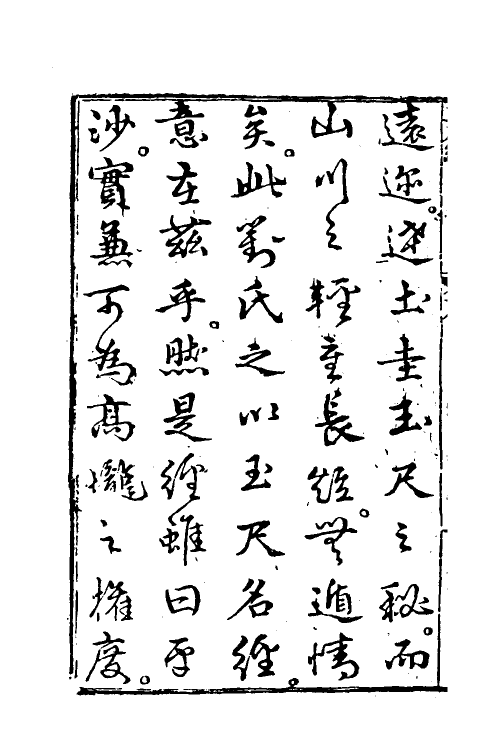 遠迩。達土圭玉尺之秘。而
山川之輕重長短。無遁情
矣。此劉氏之以玉尺名經。
意在茲乎。然是經雖曰平
沙。實兼可為高壠之權度。